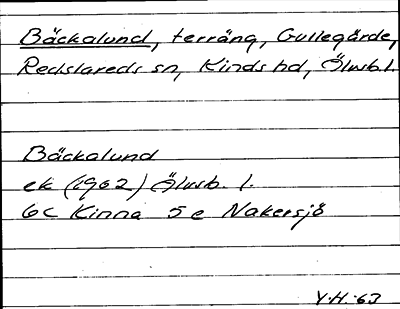 Bäckalund, terräng, Gullegärde,
Redslareds sn, Kinds hd, Älvsb. l.
Bäckalund
ek (1962) Älvsb. l.
6C Kinna 5e Nakersjö
Y.H.-63